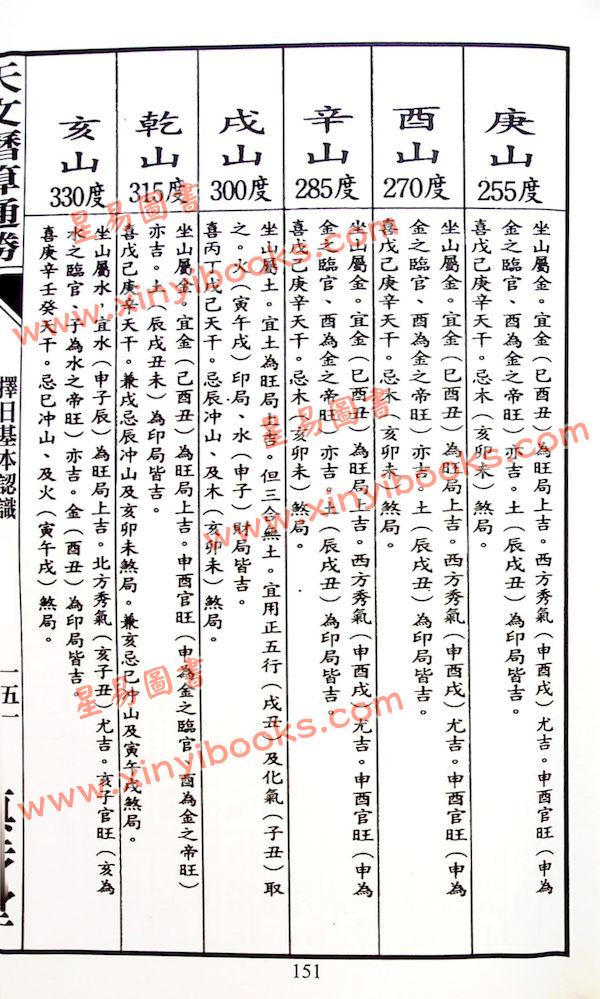 庚山
255度
坐山屬金。宜金(巳酉丑)為旺局上吉。西方秀氣(申酉戌)尤吉。申酉官旺(申為
金之臨官、酉為金之帝旺)亦吉。土(辰戌丑)為印局皆吉。
喜戊己庚辛天干。忌木(亥卯未)煞局。
酉山
270度
坐山屬金。宜金(巳酉丑)為旺局上吉。西方秀氣(申酉戌)尤吉。申酉官旺(申為
金之臨官、酉為金之帝旺)亦吉。土(辰戌丑)為印局皆吉。
喜戊己庚辛天干。忌木(亥卯未)煞局。
辛山
285度
坐山屬金。宜金(巳酉丑)為旺局上吉。西方秀氣(申酉戌)尤吉。申酉官旺(申為
金之臨官、酉為金之帝旺)亦吉。土(辰戌丑)為印局皆吉。
喜戊己庚辛天干。忌木(亥卯未)煞局。
戌山
300度
坐山屬土。宜土為旺局上吉。但三合無土。宜用正五行(戌丑)及化氣(子丑)取
之。火(寅午戌)印局、水(申子)財局皆吉。
喜丙丁戊己天干。忌辰冲山、及木(亥卯未)煞局。
乾山
315度
坐山屬金。宜金(巳酉丑)為旺局上吉。申酉官旺(申為金之臨官、酉為金之帝旺)
亦吉。土(辰戌丑未)為印局皆吉。
喜戊己庚辛天干。兼戌忌辰冲山及亥卯未煞局。兼亥忌巳冲山及寅午戌煞局。
亥山
330度
坐山屬水。宜水(申子辰)為旺局上吉。北方秀氣(亥子丑)尤吉。亥子官旺(亥為
水之臨官、子為水之帝旺)亦吉。金(酉丑)為印局皆吉。
喜庚辛壬癸天干。忌巳冲山、及火(寅午戌)煞局。
天文曆算通勝
擇日基本認識
一五一
151
星易圖書
www.xinyibooks.com
星易圖書
www.xinyibooks.com
星易圖書
www.xinyibooks.com